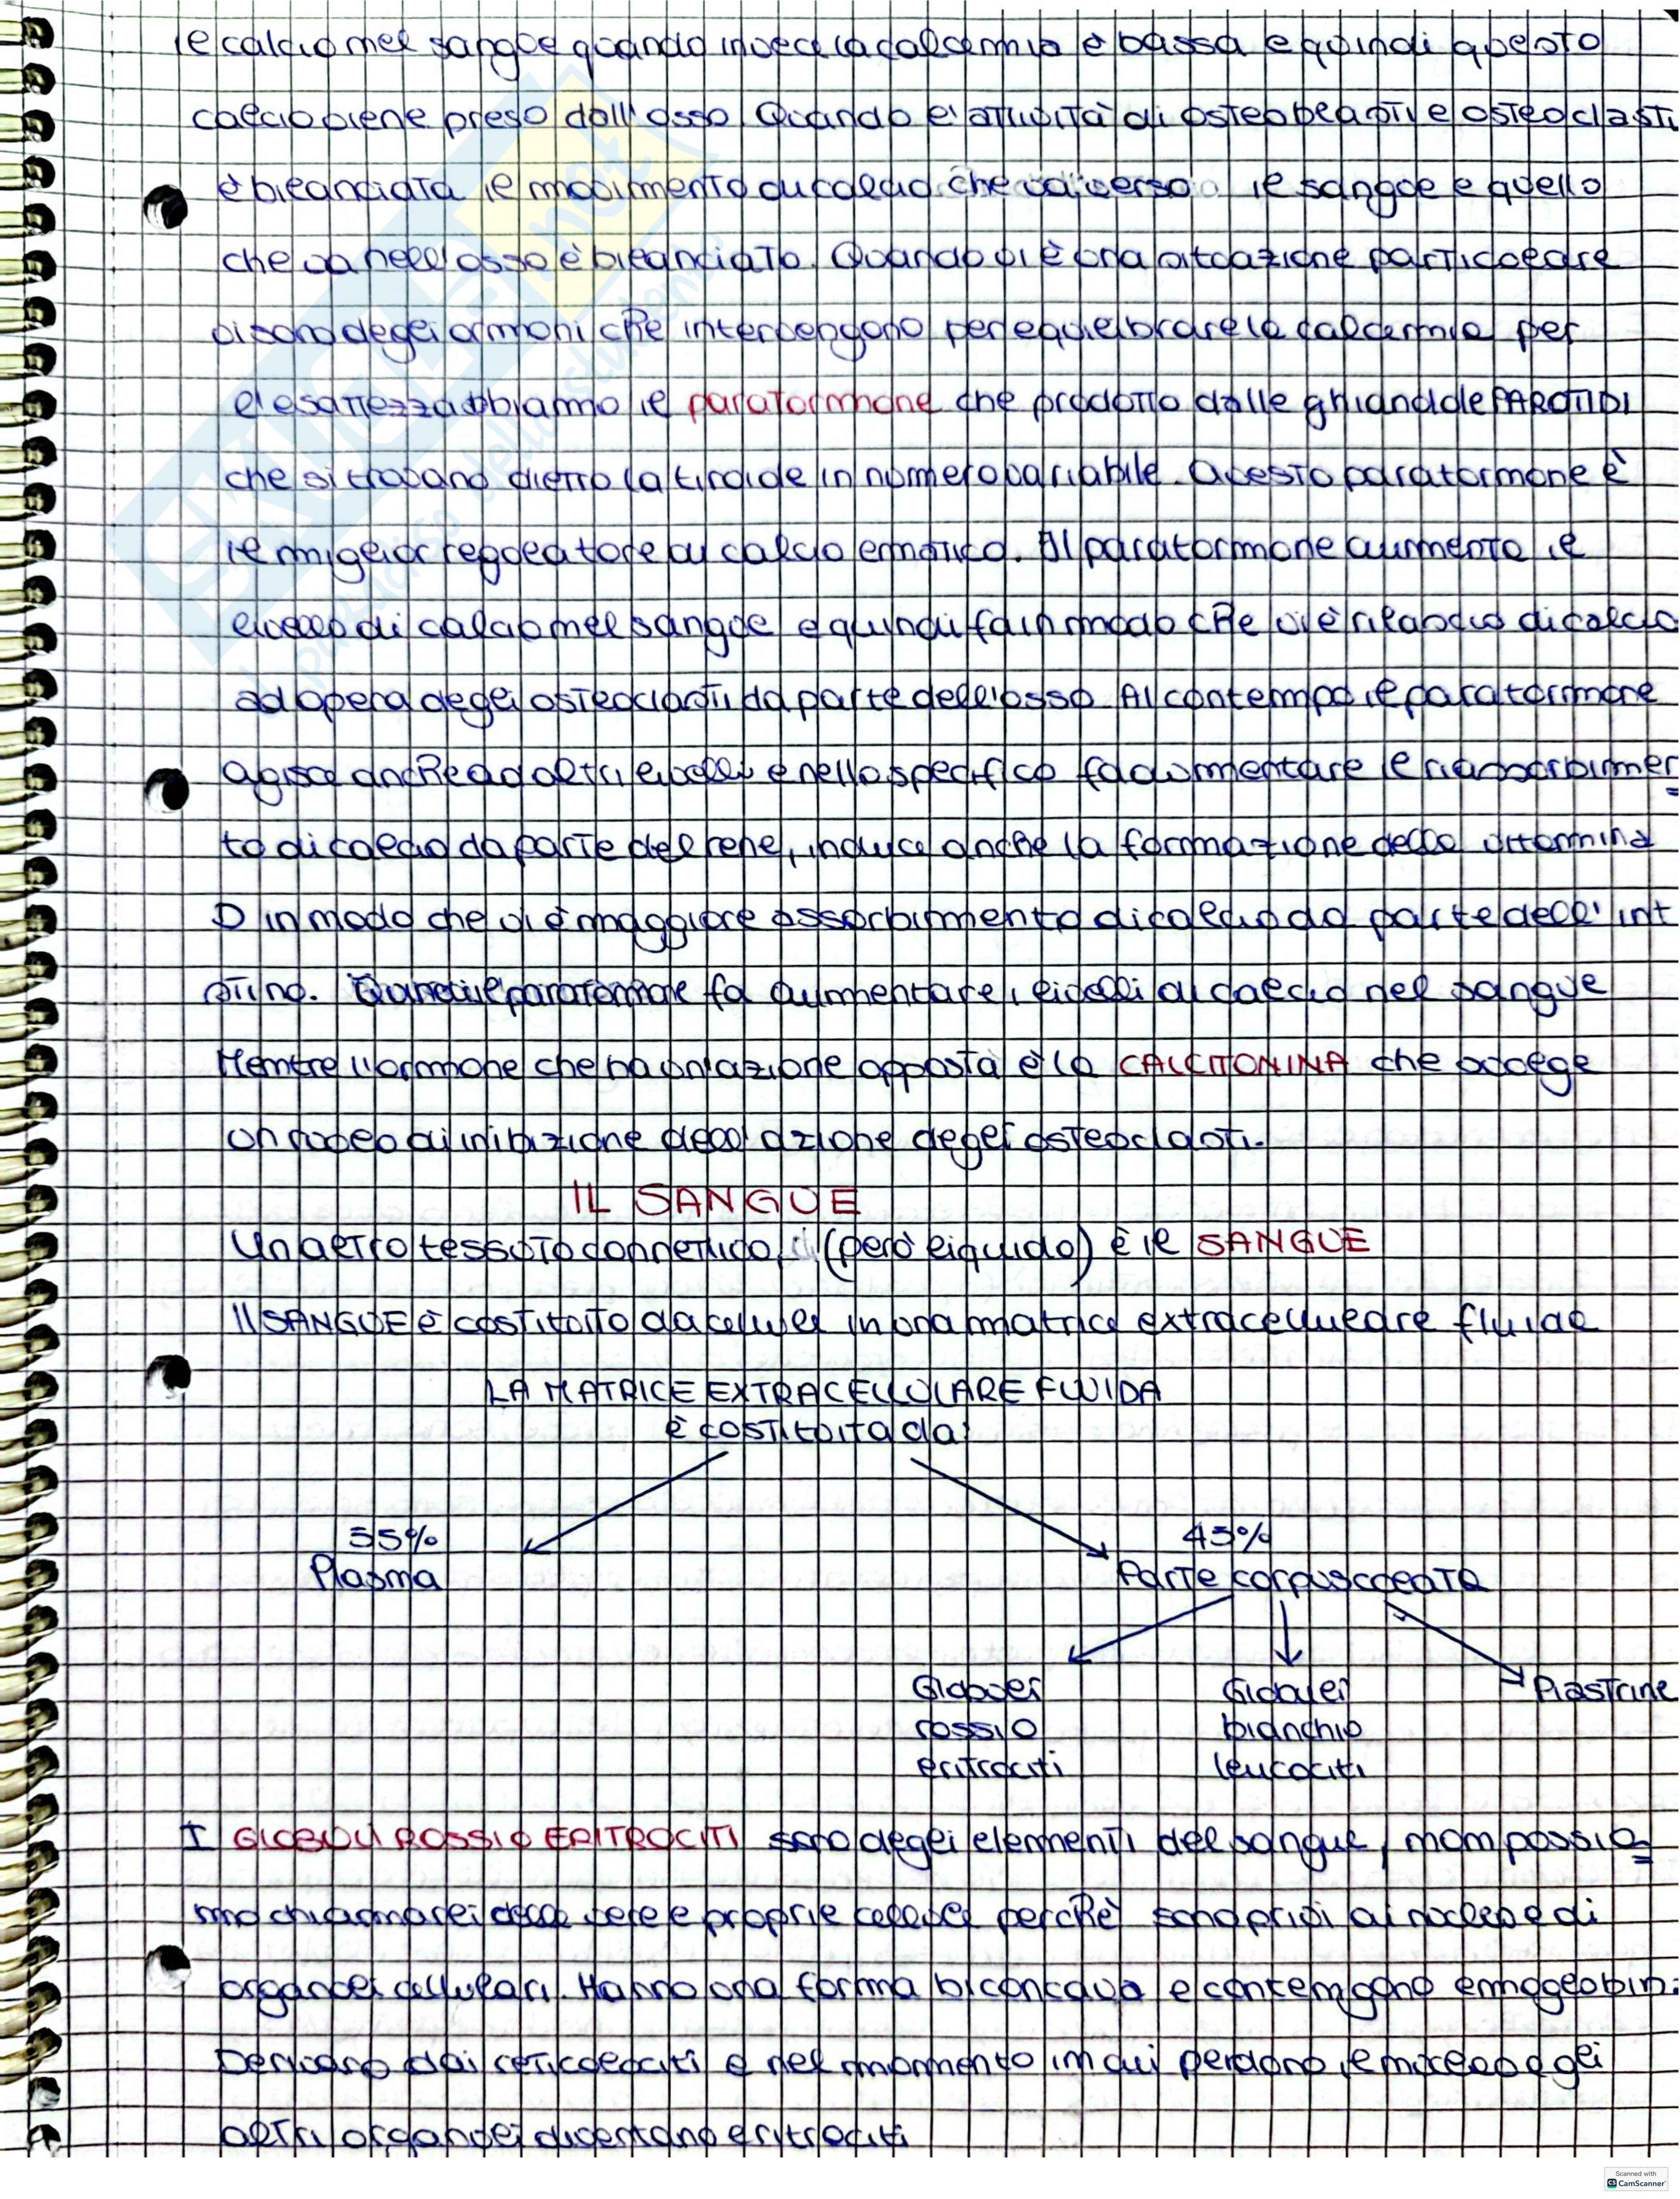 il calcio nel sangue quando invece la calcemia è bassa e quindi questo
calcio viene preso dall'osso. Quando l'attività di osteoblasti e osteoclasti
è bilanciata il movimento di calcio che va verso il sangue e quello
che va nell'osso è bilanciato. Quando vi è una situazione particolare
vi sono degli ormoni che intervengono per equilibrare la calcemia per
l'esattezza abbiamo il paratormone che prodotto dalle ghiandole PAROTIDI
che si trovano dietro la tiroide in numero variabile. Questo paratormone è
il miglior regolatore di calcio ematico. Il paratormone aumenta il
livello di calcio nel sangue e quindi fa in modo che vi è rilascio di calcio
ad opera degli osteoclasti da parte dell'osso. Al contempo il paratormone
agisce anche ad altri livelli e nello specifico fa aumentare il riassorbimen
to di calcio da parte del rene, induce anche la formazione della vitamina
D in modo che vi è maggiore assorbimento di calcio da parte dell'int
stino. Quindi il paratormone fa aumentare i livelli di calcio nel sangue
Mentre l'ormone che ha un'azione opposta è la CALCITONINA che svolge
un ruolo di inibizione dell'azione degli osteoclasti.
IL SANGUE
Un altro tessuto connettivo, (però liquido) è il SANGUE
Il SANGUE è costituito da cellule in una matrice extracellulare fluida
LA MATRICE EXTRACELLULARE FLUIDA
È costituita da:
55% 45%
Plasma Parte corpuscolata
Globuli Globuli Piastrine
rossi o bianchi o
eritrociti leucociti
I GLOBULI ROSSI O ERITROCITI sono degli elementi del sangue, non possia
mo chiamarli vere e proprie cellule perchè sono privi di nucleo e di
organuli cellulari. Hanno una forma biconcava e contengono emoglobin.
Derivano dai reticolociti e nel momento in cui perdono il nucleo e gli
altri organuli diventano eritrociti
SKUOLA.net
il paradiso dello studente
Scanned with
CS CamScanner